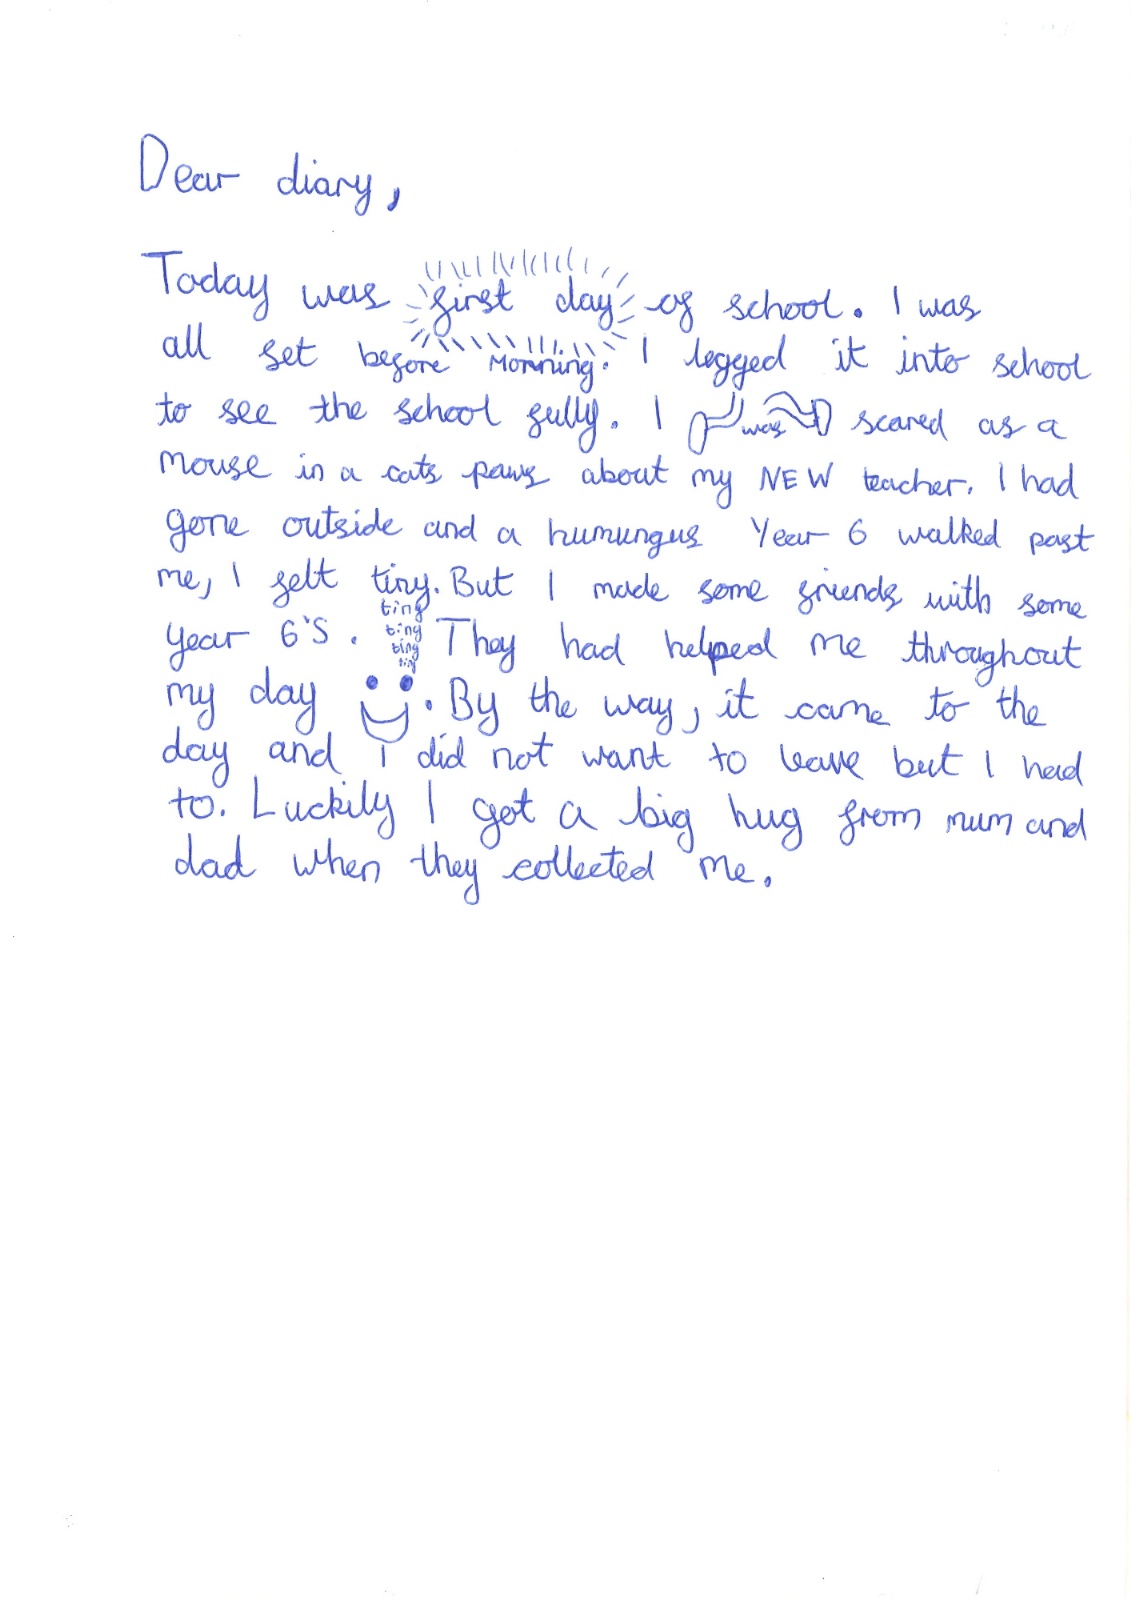 Dear diary,
Today was first day of school. I was
all set before Mornning. I legged it into school
to see the school fully. I was scared as a
mouse in a cats paws about my NEW teacher. I had
gone outside and a humungus Year 6 walked past
me, I felt tiny. But I made some friends with some
tiny
year 6'S. They had helped me throughout
tiny
tiny
tiny
my day. By the way, it came to the
day and i did not want to leave but I had
to. Luckily I got a big hug from mum and
dad when they collected me.